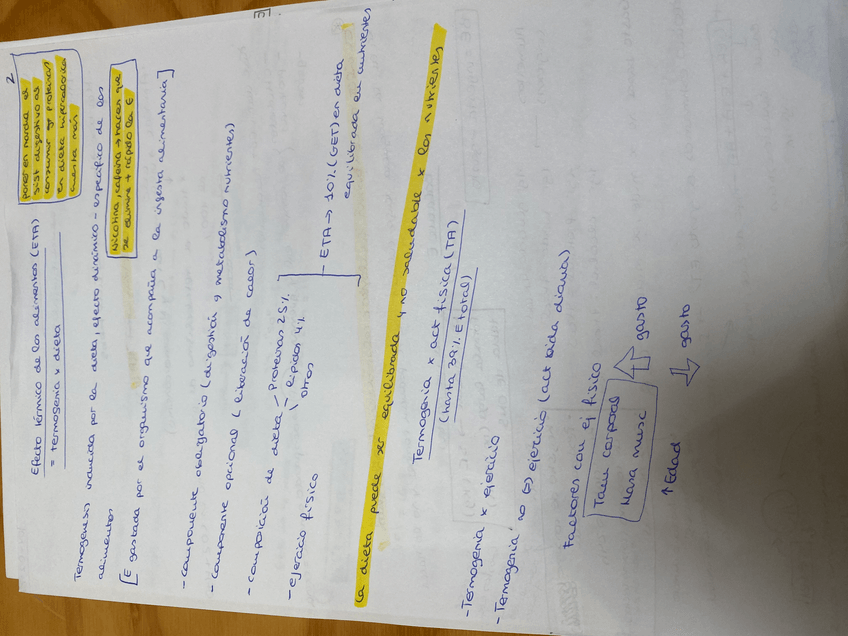 2
Efecto térmico de los alimentos (ETA)
= termogenia x dieta
poner en marcha el
sist digestivo al
consumir gr proteinas
en dieta hipercalórica
cuesta más
Termogenesis inducida por la dieta, efecto dinámico-específico de los
alimentos
Nicotina, cafeina → hacen que
se elimine + rápido la E
[E gastada por el organismo que acompaña a la ingesta alimentaria]
- componente obligatorio (digestión y metabolismo nutrientes)
- componente opcional (liberación de calor)
- composición de dieta - proteinas 25%
- lipidos 4%
otros
- ejercicio físico
- ETA → 10% (GET) en dieta
equilibrada en nutrientes
La dieta puede ser equilibrada y no saludable x los nutrientes
Termogenia x act física (TA)
(hasta 39% E total)
- Termogenia x ejercicio
- Termogenia no (=) ejercicio (act diaria)
Factores con ej físico
Tamº corporal
Masa musc
⇑ gasto
↑ Edad
⇓ gasto